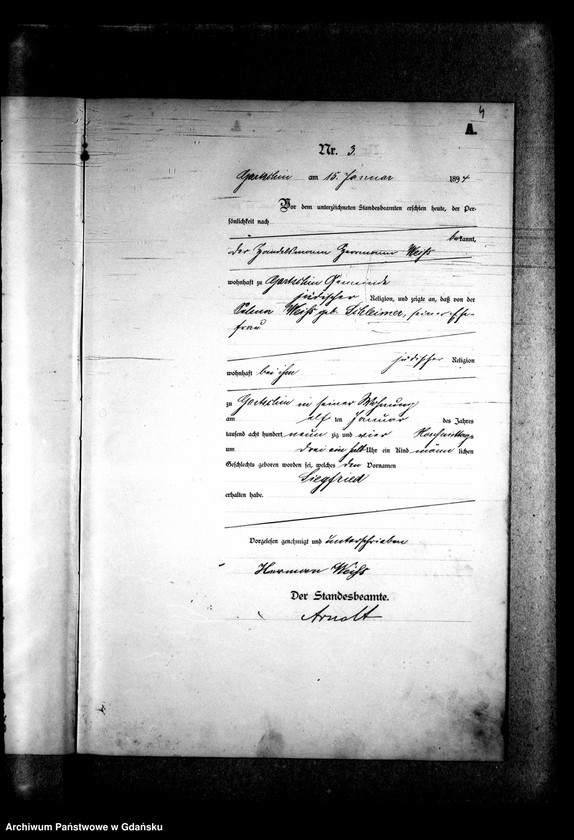 4
A.
Nr. 3.
Gartschin am 15. Januar 1894
Vor dem unterzeichneten Standesbeamten erschien heute, der Per-
sönlichkeit nach
bekannt,
der Handelsmann Herrmann Weiß
wohnhaft zu Gartschin Gemeinde
jüdischer Religion, und zeigte an, daß von der
Weiß geb. Schleimer, seiner Ehe-
frau
jüdischer Religion
wohnhaft bei ihm
zu Gartschin in seiner Wohnung
am elf ten Januar des Jahres
tausend acht hundert neun zig und vier Nachmittags
um drei ein halb Uhr ein Kind männ lichen
Geschlechts geboren worden sei, welches den Vornamen
Siegfried
erhalten habe.
Vorgelesen, genehmigt und unterschrieben
Hermann Weiß
Der Standesbeamte.
Arndt
Archiwum Państwowe w Gdańsku